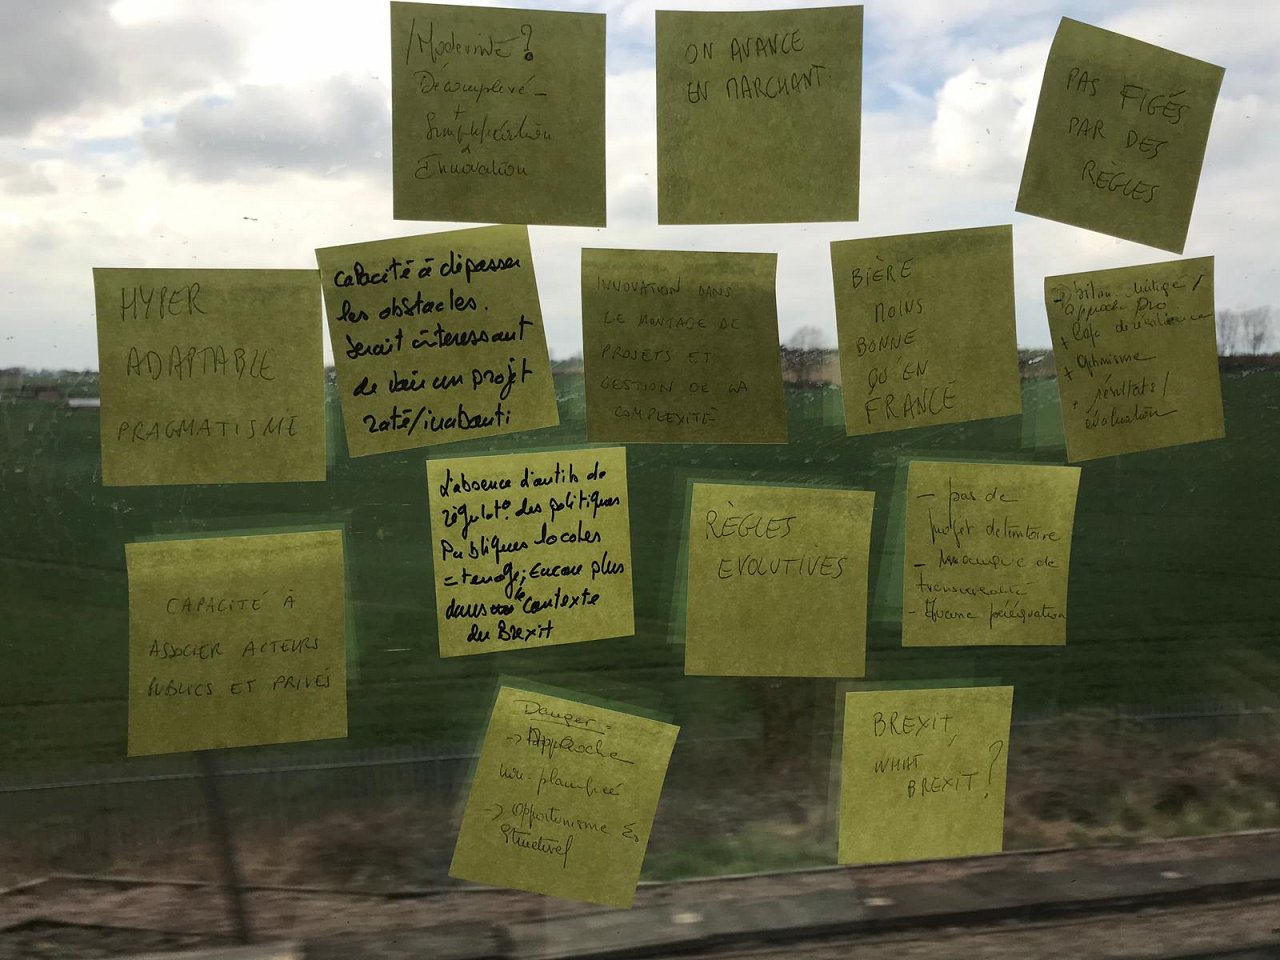 Modernité ?
Décomplexé -
+
Simplification
Innovation
ON AVANCE
EN MARCHANT.
PAS FIGÉS
PAR DES
RÈGLES
HYPER
ADAPTABLE
PRAGMATISME
Capacité à dépasser
les obstacles.
Serait intéressant
de voir un projet
raté/inabouti
INNOVATION DANS
LE MONTAGE DE
PROJETS ET
GESTION DE LA
COMPLEXITÉ
BIÈRE
MOINS
BONNE
QU'EN
FRANCE
→ bilan mitigé /
approche pro
+ de résilience
+ optimisme
+ résultats /
évaluation
CAPACITÉ À
ASSOCIER ACTEURS
PUBLICS ET PRIVÉS
L'absence d'outils de
régulat° des politiques
Publiques locales
= ; Encore plus
dans le contexte
du Brexit
RÈGLES
EVOLUTIVES
- pas de
projet de territoire
- manque de
transversalité
- Aucune péréquation
Danger :
→ Approche
non-planifiée
→ Opportunisme
Structurel
BREXIT,
WHAT
BREXIT ?